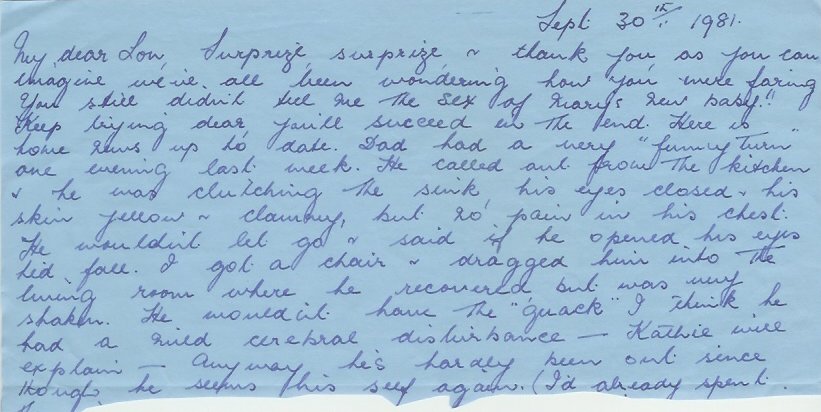 Sept 30th 1981.
My dear Lou, Surprize, surprize & thank you as you can
imagine we've all been wondering how you were faring
You still didn't tell me the sex of Mary's new baby!!
Keep trying dear, you'll succeed in the end. Here is
home news up to date. Dad had a very "funny turn"
one evening last week. He called out from the kitchen
& he was clutching the sink, his eyes closed & his
skin yellow & clammy, but no pain in his chest.
He wouldn't let go & said if he opened his eyes
he'd fall. I got a chair & dragged him into the
living room where he recovered but was very
shaken. He wouldn't have the "quack" I think he
had a mild cerebral disturbance — Kathie will
explain — Anyway he's hardly been out since
though he seems his self again. (I'd already spent